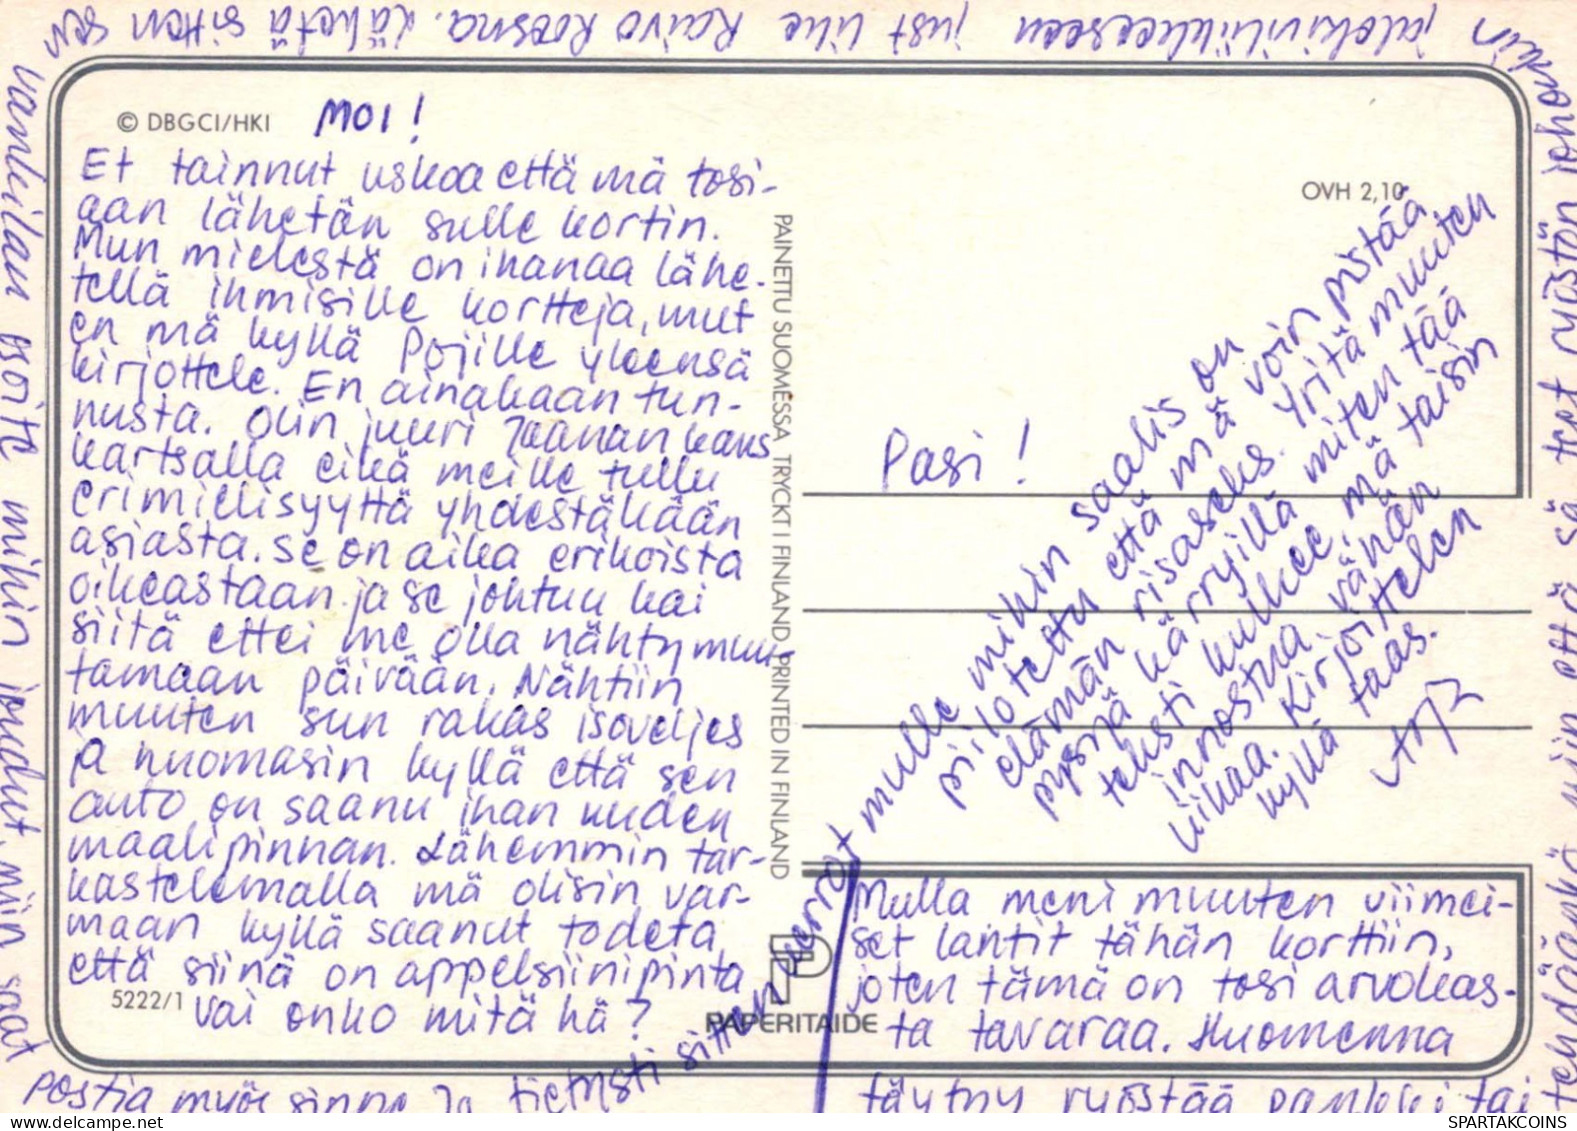 © DBGCI/HKI
MOI!
Et tainnut uskoa että mä tosi-
aan lähetän sulle kortin.
Mun mielestä on ihanaa lähe-
tellä ihmisille kortteja, mut
en mä kyllä Pojille yleensä
kirjottele. En ainakaan tun-
nusta. Olin juuri Jaanan kans
kartsalla eikä meille tullu
erimielisyyttä yhdestäkään
asiasta. Se on aika erikoista
oikeastaan ja se johtuu kai
siitä ettei me olla nähty muu-
tamaan päivään. Nähtiin
muuten sun rakas isoveljes
ja huomasin kyllä että sen
auto on saanu ihan uuden
maalipinnan. Lähemmin tar-
kastelemalla mä olisin var-
maan kyllä saanut todeta
että siinä on appelsiinipinta
vai onko mitä hä?
5222/1
PAINETTU SUOMESSA TRYCKT I FINLAND PRINTED IN FINLAND
PAPERITAIDE
OVH 2,10
Pasi!
Mulla meni muuten viimei-
set lantit tähän korttiin,
joten tämä on tosi arvokas-
ta tavaraa. Huomenna
täytyy ryöstää pankki tai
tehdäänkö niin että sä teet ryöstön johonkin
jalokiviliikkeeseen just niin Raivo Roosna. Lähetä sitten sen
vankilan osoite mihin joudut, niin saat
postia myös sinne. Ja tietysti sitten kerrot mulle mihin saalis on
piilotettu että mä voin pistää
elämän risaseks. Yritä muuten
pysyä kärryillä miten tää
teksti kulkee, mä taisin
innostua vähän
liikaa. Kirjoittelen
kyllä taas.